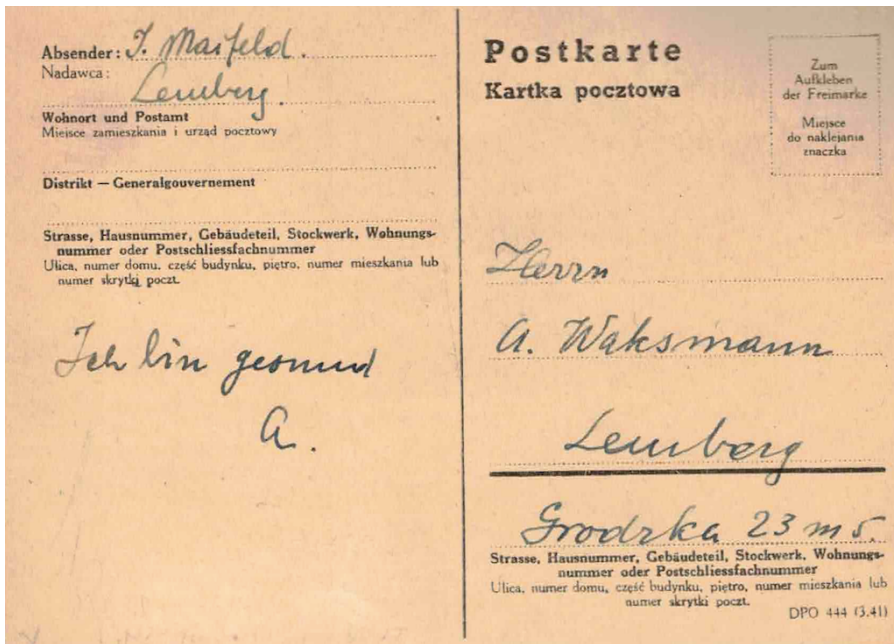 Absender: J. Maifeld.
Nadawca:
Lemberg.
Wohnort und Postamt
Miejsce zamieszkania i urząd pocztowy
Distrikt — Generalgouvernement
Strasse, Hausnummer, Gebäudeteil, Stockwerk, Wohnungs-
nummer oder Postschliessfachnummer
Ulica, numer domu, część budynku, piętro, numer mieszkania lub
numer skrytki poczt.
Ich bin gesund
A.
Postkarte
Kartka pocztowa
Zum
Aufkleben
der Freimarke
Miejsce
do naklejania
znaczka
Herrn
A. Waksmann
Lemberg
Grodzka 23 m 5.
Strasse, Hausnummer, Gebäudeteil, Stockwerk, Wohnungs-
nummer oder Postschliessfachnummer
Ulica, numer domu, część budynku, piętro, numer mieszkania lub
numer skrytki poczt.
DPO 444 (3.41)